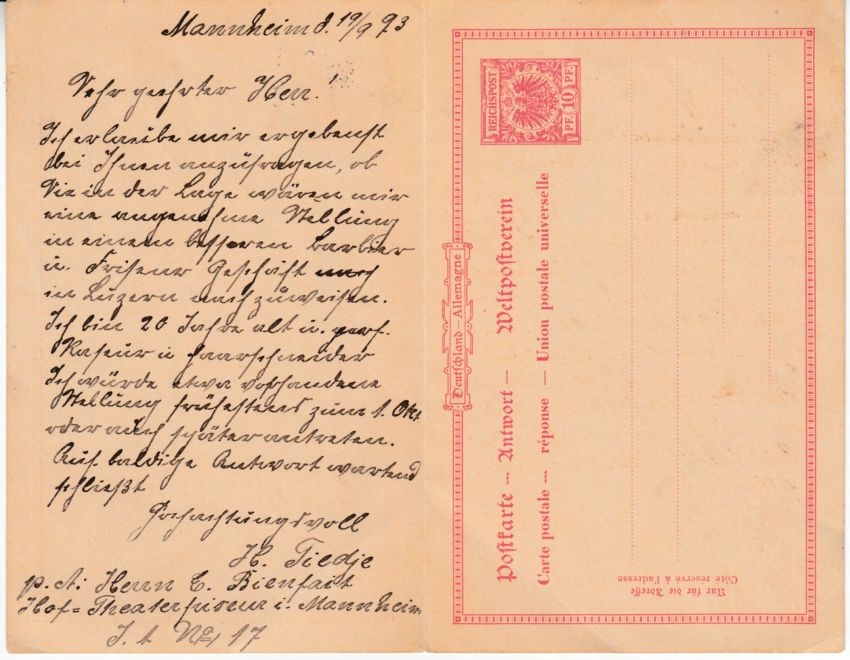 Mannheim d. 19/9 93
Sehr geehrter Herr!
Ich erlaube mir ergebenst
bei Ihnen anzufragen, ob
Sie in der Lage wären mir
eine angenehme Stellung
in einem besseren Barbier
u. Friseur Geschäft
in Luzern nachzuweisen.
Ich bin 20 Jahre alt u. perf.
Raseur u Haarschneider
Ich würde etwa vorhandene
Stellung frühestens zum 1. Okt
oder auch später antreten.
Auf baldige Antwort wartend
schließt
Hochachtungsvoll
H. Tiedje
p. A: Herrn C. Bienfait
Hof-Theaterfriseur i. Mannheim
J. 1 No 17
REICHSPOST
10
PF.
PF.
Deutschland – Allemagne
Postkarte – Antwort – Weltpostverein
Carte postale – réponse – Union postale universelle
Nur für die Adresse
Côté réservé à l'adresse